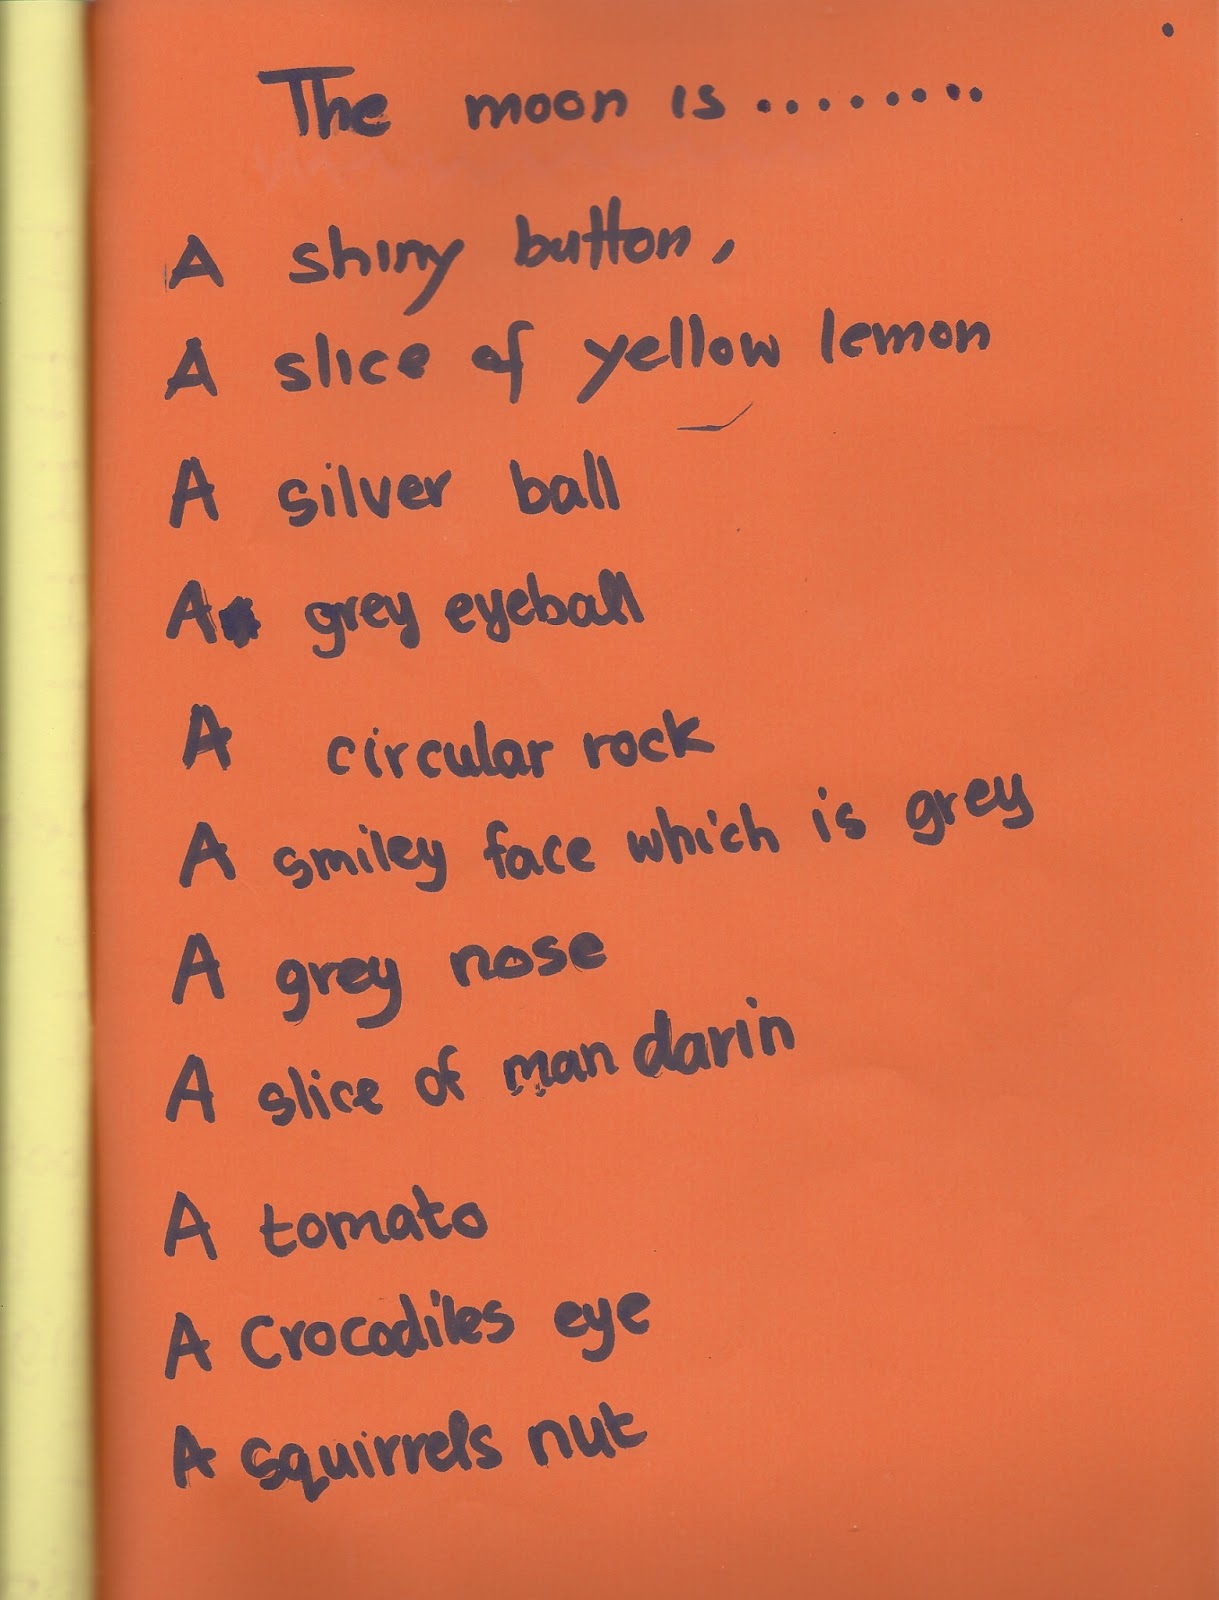 The moon is ........
A shiny button,
A slice of yellow lemon
A silver ball
A grey eyeball
A circular rock
A smiley face which is grey
A grey nose
A slice of mandarin
A tomato
A Crocodiles eye
A squirrels nut